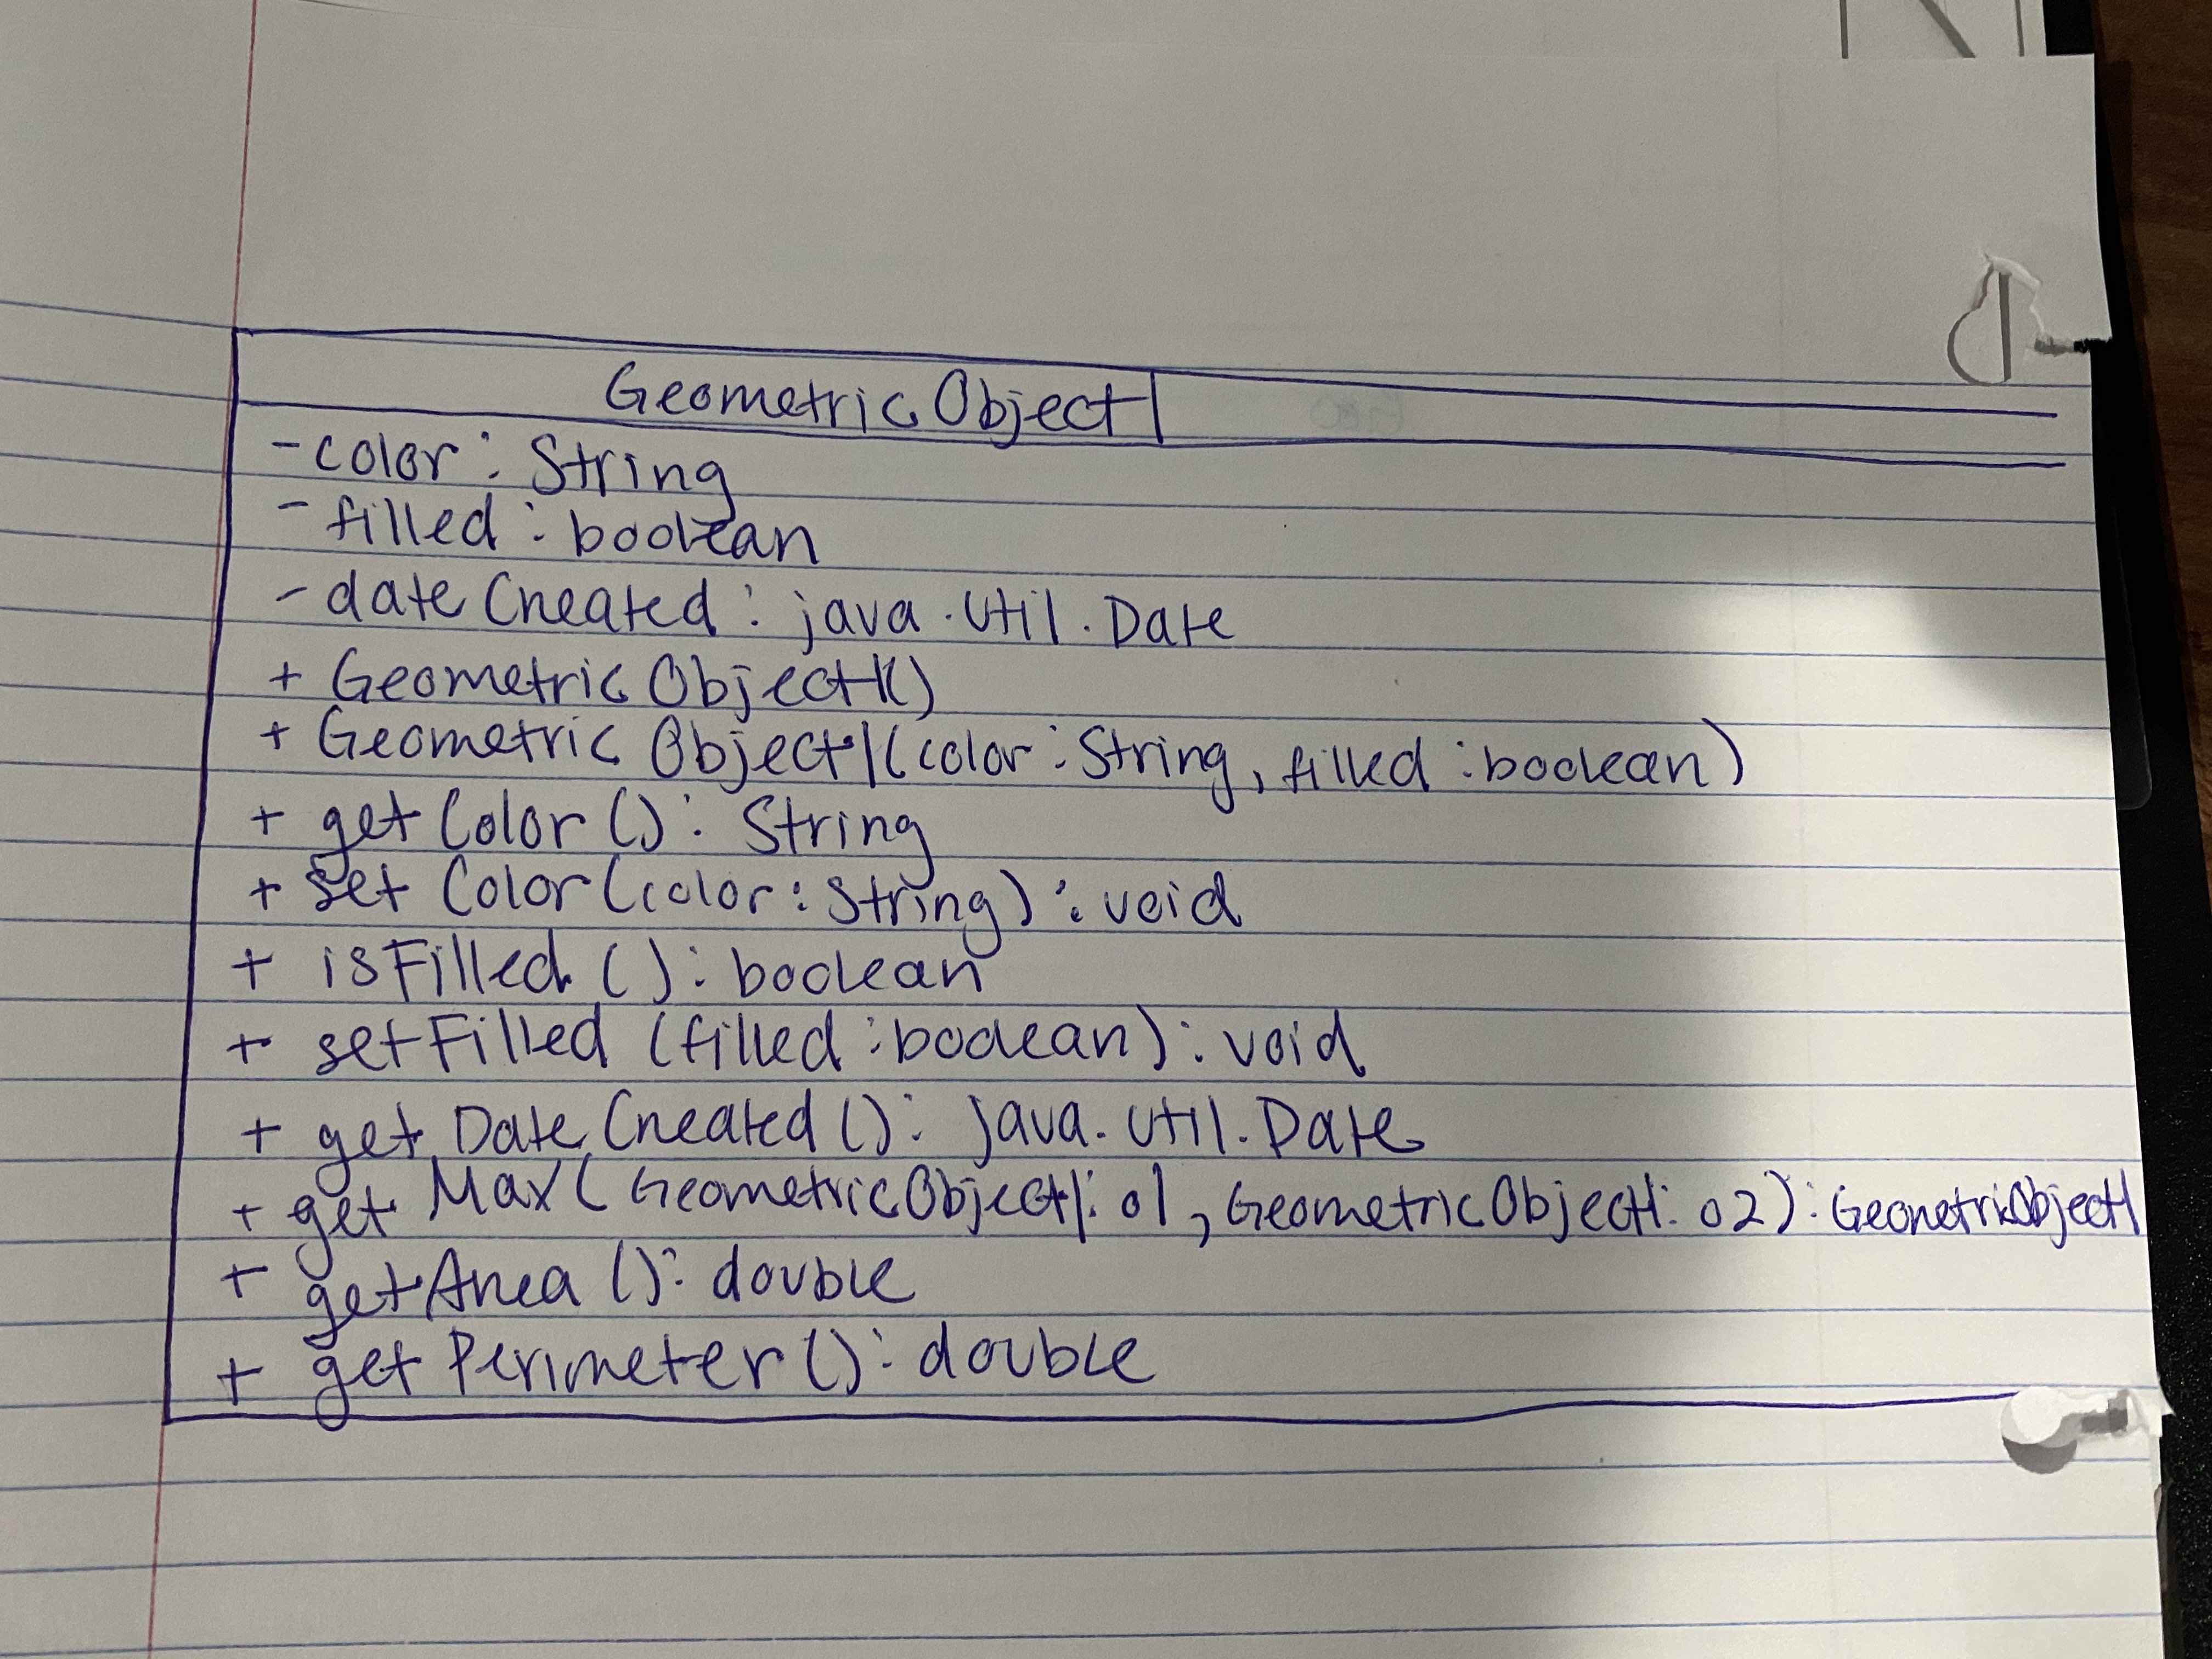 GeometricObject1
- color : String
- filled : boolean
- dateCreated : java.util.Date
+ GeometricObject1()
+ GeometricObject1(color : String, filled : boolean)
+ getColor() : String
+ setColor(color : String) : void
+ isFilled() : boolean
+ setFilled(filled : boolean) : void
+ getDateCreated() : java.util.Date
+ getMax(GeometricObject1: o1, GeometricObject1: o2) : GeometricObject1
+ getArea() : double
+ getPerimeter() : double